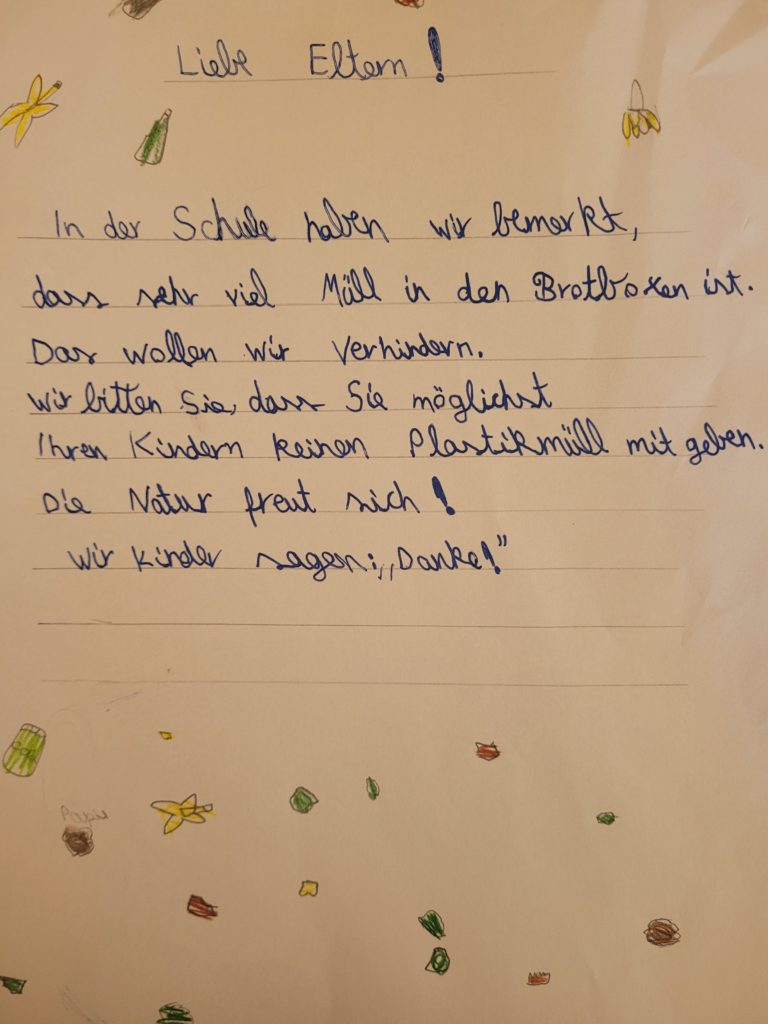 Liebe Eltern!
In der Schule haben wir bemerkt,
dass sehr viel Müll in den Brotboxen ist.
Das wollen wir verhindern.
wir bitten Sie, dass Sie möglichst
Ihren Kindern keinen Plastikmüll mit geben.
Die Natur freut sich!
Wir kinder sagen: „Danke!”